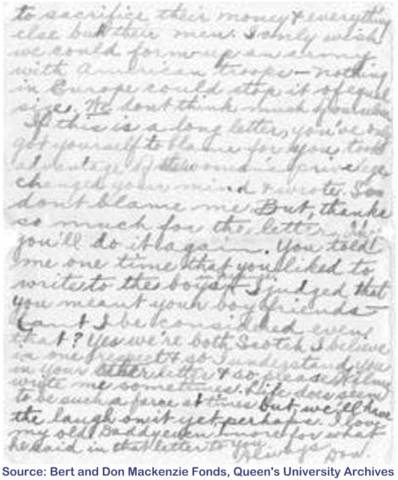 to sacrifice their money & everything
else but their men. I only wish
we could form up an army
with American troops – nothing
in Europe could stop it of equal
size. We dont think much of
If this is a long letter, you've only
got yourself to blame for you took
advantage of the woman's privilege
changed your mind & wrote. So
dont blame me. But, thanks
so much for the letter
you'll do it again. You told
me one time that you liked to
write to the boys & I judged that
you meant your boy friends
Can't I be considered even
that? Yes we're both Scotch I believe
in one respect & so I understand you
in your letter & so please
write me sometimes. Life does seem
to be such a farce at times but, we'll have
the laugh on it yet perhaps. I love
my old Daddy even more for what
he said in that letter to you.
Always Don.
Source: Bert and Don Mackenzie Fonds, Queen's University Archives